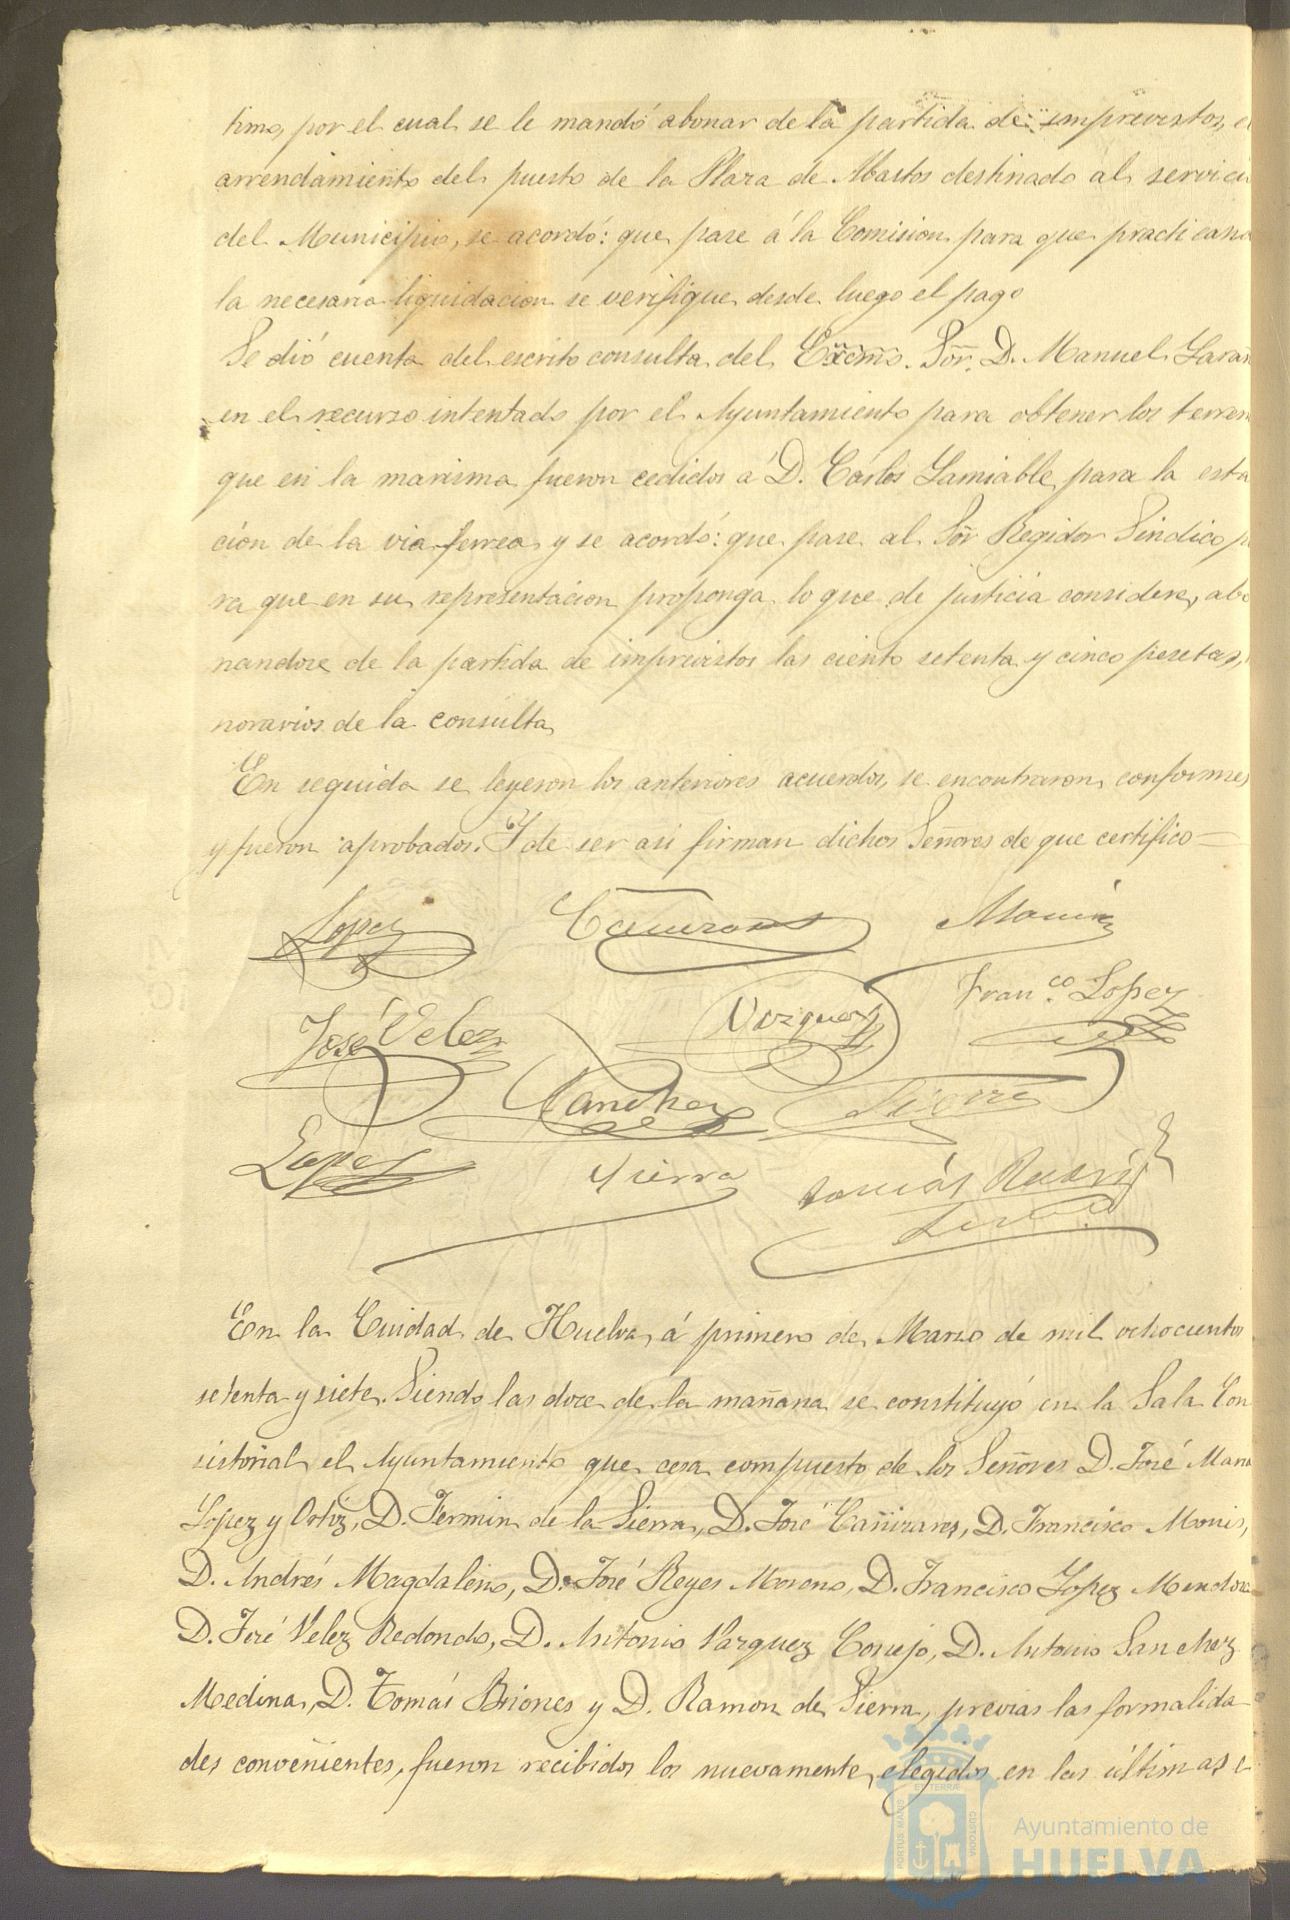 timo, por el cual se le mandó abonar de la partida de imprevistos, e
arrendamiento del puesto de la Plaza de Abastos destinado al servici
del Municipio, se acordó: que pase á la Comision para que practicand
la necesaria liquidacion se verifique desde luego el pago
Se dió cuenta del escrito consulta del Excmo. Sōr. D. Manuel Larañ
en el recurso intentado por el Ayuntamiento para obtener los terren
que en la marisma fueron cedidos á D. Cárlos Lamiable para la esta
ción de la via ferrea y se acordó: que pase al Sōr Regidor Sindico p
ra que en su representacion proponga lo que de justicia considere, abo
nandose de la partida de imprevistos las ciento setenta y cinco pesetas,
norarios de la consulta
En seguida se leyeron los anteriores acuerdos, se encontraron conformes
y fueron aprobados. Y de ser asi firman dichos Señores de que certifico=
Lopez
Cañizares
José Velez
Vazquez
Fran.co Lopez
Sanchez
Sierra
Lopez
Sierra
Tomás
En la Ciudad de Huelva, á primero de Marzo de mil ochocientos
setenta y siete. Siendo las doce de la mañana se constituyó en la Sala Con
sistorial el Ayuntamiento que cesa compuesto de los Señores D. José Maria
Lopez y Ortiz, D. Fermin de la Sierra, D. José Cañizares, D. Francisco Monis,
D. Andrés Magdaleno, D. José Reyes Moreno, D. Francisco Lopez Mendoza
D. José Velez Redondo, D. Antonio Vazquez Conejo, D. Antonio Sanchez
Medina, D. Tomás Briones y D. Ramon de Sierra, previas las formalida
des convenientes, fueron recibidos los nuevamente elegidos en las últimas e
PORTUS MARIS
ET TERRÆ
CUSTODIA
Ayuntamiento de
HUELVA